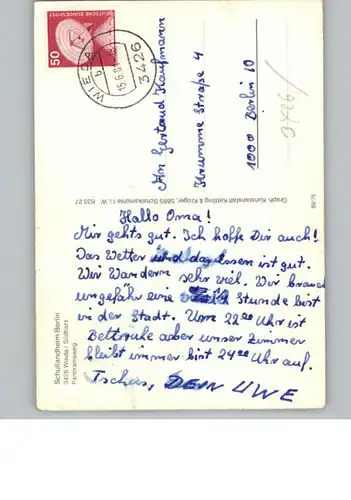 Hallo Oma!
Mir gehts gut. Ich hoffe Dir auch!
Das Wetter und das Essen ist gut.
Wir Wandern sehr viel. Wir brauchen
ungefähr eine Stunde bist
in der Stadt. Um 22⁰⁰ Uhr ist
Bettruhe aber unser Zimmer
bleibt immer bist 24⁰⁰ Uhr auf.
Tschüs, DEIN UWE
An Gertaud Kaufmann
Krumme Straße 4
1000 Berlin 10
DEUTSCHE BUNDESPOST
50
WIEDA
b
15.6.81
3426
Graph. Kunstanstalt Kettling & Krüger, 5885 Schalksmühle 1 i. W. 635 27
89/76
Schullandheim Berlin
3426 Wieda / Südharz
Panoramaweg